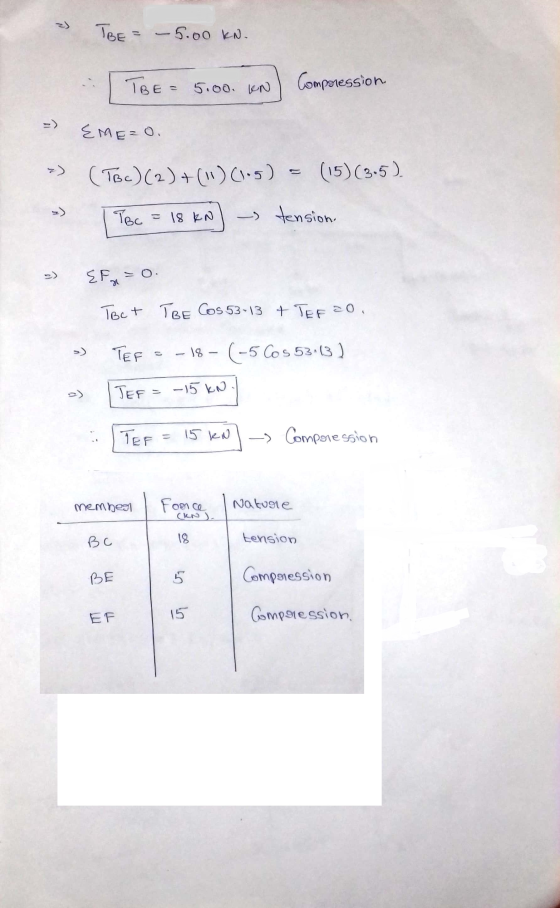 => TBE = -5.00 kN.
∴ TBE = 5.00. kN Compression
=> ΣME = 0.
=> (TBC)(2) + (11)(1.5) = (15)(3.5).
=> TBC = 18 kN → tension.
=> ΣFx = 0.
TBC + TBE Cos 53.13 + TEF = 0.
=> TEF = -18 - (-5 Cos 53.13)
=> TEF = -15 kN.
∴ TEF = 15 kN → Compression
member Force (kN). Nature
BC 18 tension
BE 5 Compression
EF 15 Compression.